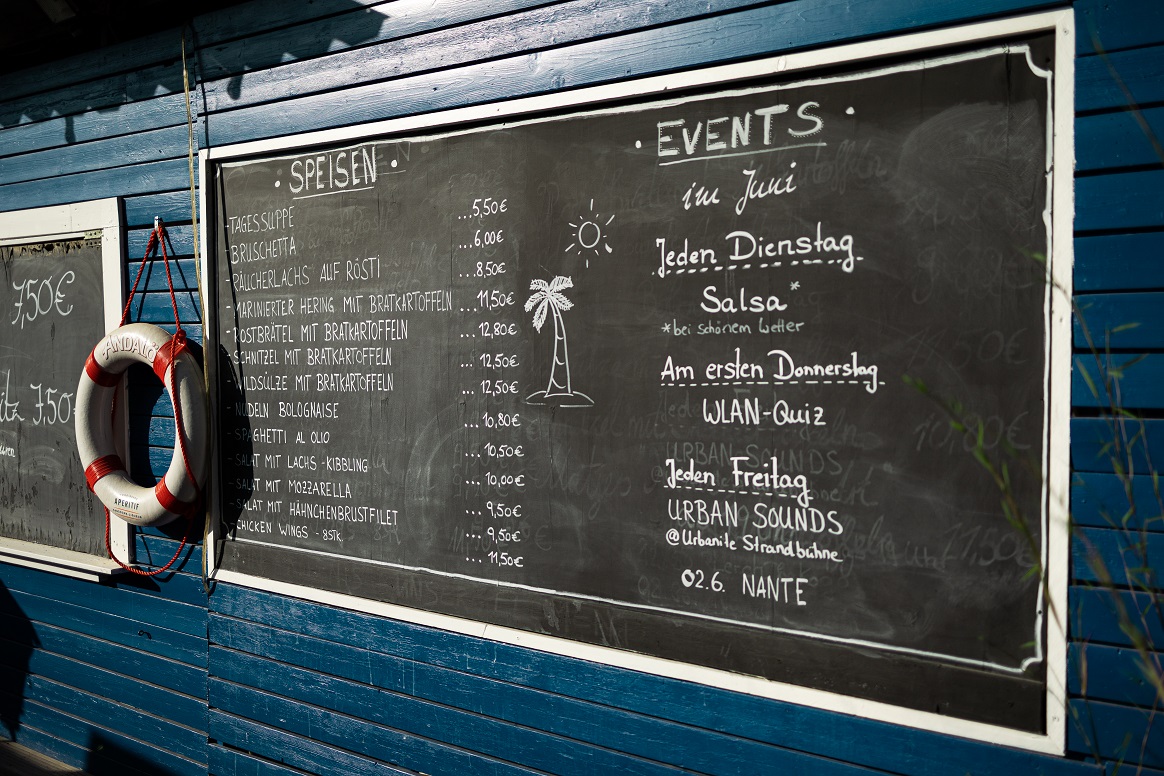 7,50€
7,50
ANDALÖ
APERITIF
• SPEISEN •
- TAGESSUPPE ...5,50€
- BRUSCHETTA ...6,00€
- RÄUCHERLACHS AUF RÖSTI ...8,50€
- MARINIERTER HERING MIT BRATKARTOFFELN ...11,50€
- ROSTBRÄTEL MIT BRATKARTOFFELN ...12,80€
- SCHNITZEL MIT BRATKARTOFFELN ...12,50€
- WILDSÜLZE MIT BRATKARTOFFELN ...12,50€
- NUDELN BOLOGNAISE ...10,80€
- SPAGHETTI AL OLIO ...10,50€
- SALAT MIT LACHS-KIBBLING ...10,00€
- SALAT MIT MOZZARELLA ...9,50€
- SALAT MIT HÄHNCHENBRUSTFILET ...9,50€
- CHICKEN WINGS - 8STK. ...11,50€
• EVENTS •
im Juni
Jeden Dienstag
Salsa*
*bei schönem Wetter
Am ersten Donnerstag
WLAN-Quiz
Jeden Freitag
URBAN SOUNDS
@Urbanite Strandbühne
02.6. NANTE